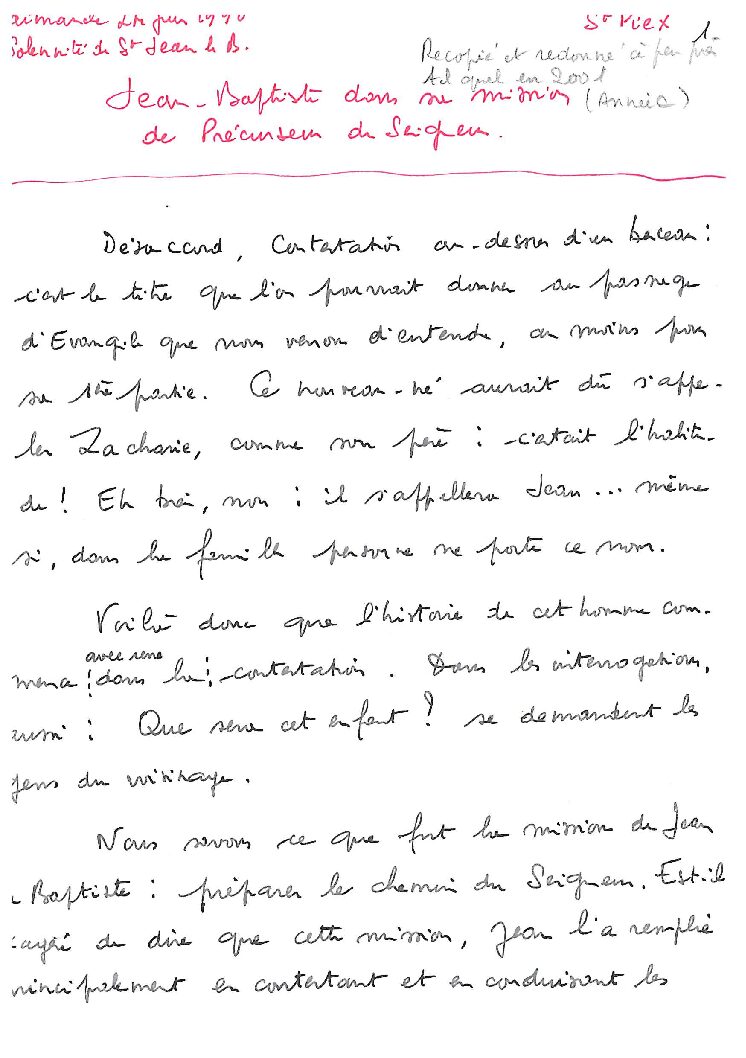 Dimanche 24 juin 1990
St Yieix
Solennité de St Jean le B.
1
Recopié et redonné à peu près
tel quel en 2001
(Année C)
Jean-Baptiste dans sa mission
de Précurseur du Seigneur.
Désaccord, Contestation au-dessus d'un berceau :
c'est le titre que l'on pourrait donner au passage
d'Evangile que nous venons d'entendre, au moins pour
sa 1ère partie. Ce nouveau-né aurait dû s'appe-
ler Zacharie, comme son père : c'était l'habitu-
de ! Eh bien, non : il s'appellera Jean... même
si, dans la famille personne ne porte ce nom.
Voilà donc que l'histoire de cet homme com-
avec une
mence dans la contestation. Dans les interrogations,
aussi : Que sera cet enfant ? se demandent les
gens du voisinage.
Nous savons ce que fut la mission de Jean
Baptiste : préparer le chemin du Seigneur. Est-il
de dire que cette mission, Jean l'a remplie
principalement en contestant et en conduisant les